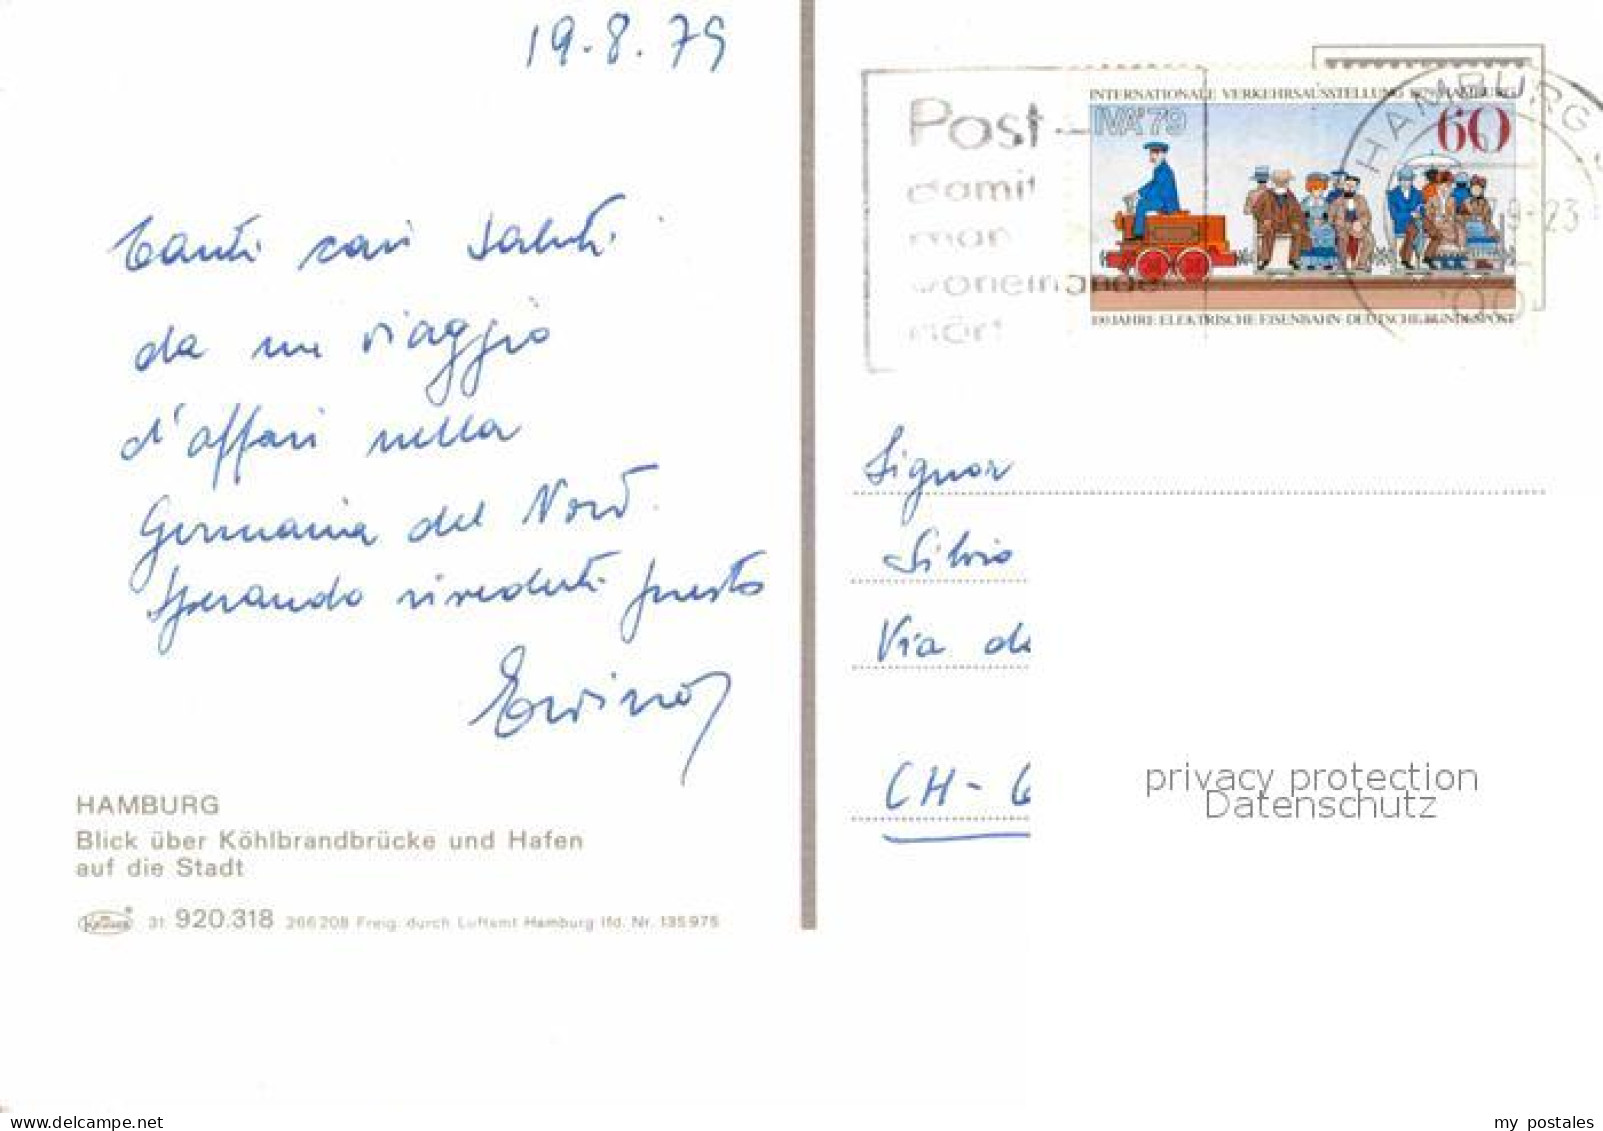 19.8.79
Tanti cari saluti
da un viaggio
d'affari nella
Germania del Nord.
Sperando rivederti presto
HAMBURG
Blick über Köhlbrandbrücke und Hafen
auf die Stadt
Krüger 31 920.318 266208 Freig. durch Luftamt Hamburg lfd. Nr. 135975
Post-
damit
man
voneinander
hört
INTERNATIONALE VERKEHRSAUSSTELLUNG 1979 HAMBURG
IVA'79
60
100 JAHRE ELEKTRISCHE EISENBAHN · DEUTSCHE BUNDESPOST
HAMBURG
9-23
Signor
Silvio
Via de
CH-6
privacy protection
Datenschutz
my postales